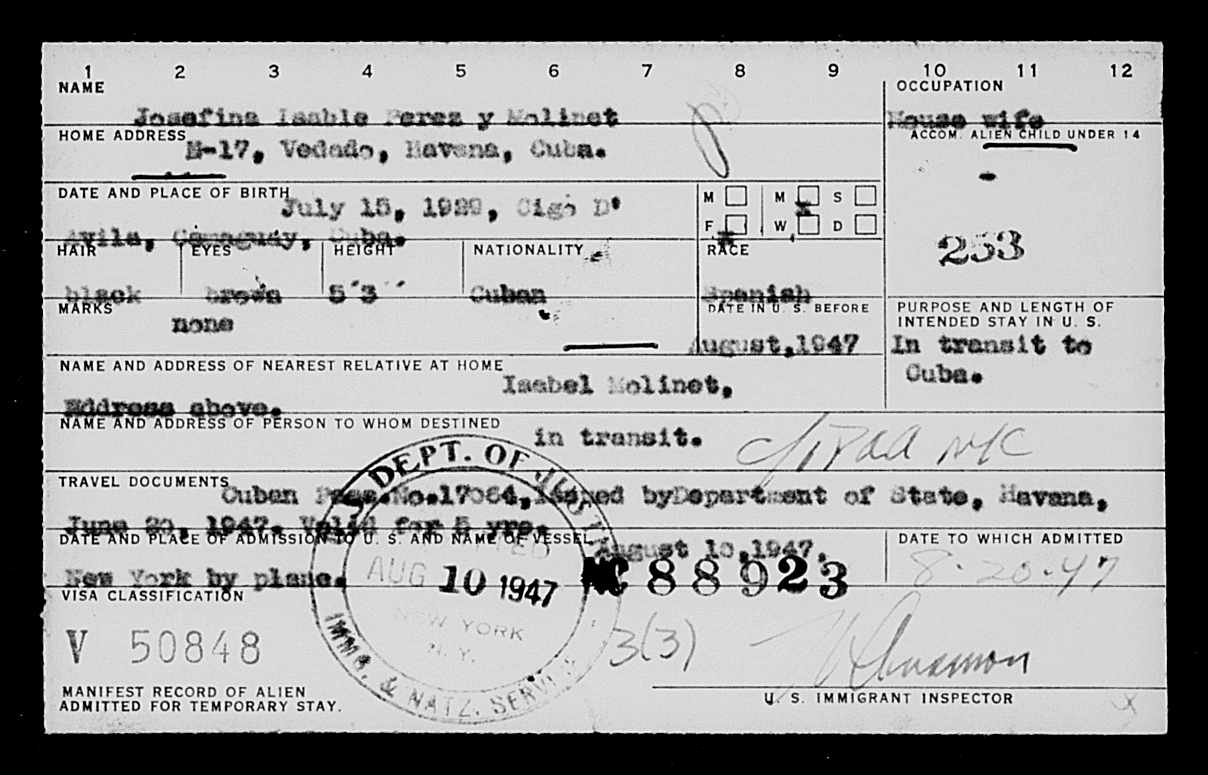 1 2 3 4 5 6 7 8 9 10 11 12
NAME
Josefina Isable Perez y Molinet
OCCUPATION
House wife
HOME ADDRESS
M-17, Vedado, Havana, Cuba.
ACCOM. ALIEN CHILD UNDER 14
-
DATE AND PLACE OF BIRTH
July 15, 1929, Cigo D'
Avila, Camaguay, Cuba.
M M x S
F x W D
253
HAIR EYES HEIGHT NATIONALITY RACE
black brown 5'3'' Cuban Spanish
MARKS
none
DATE IN U. S. BEFORE
August, 1947
PURPOSE AND LENGTH OF
INTENDED STAY IN U. S.
In transit to
Cuba.
NAME AND ADDRESS OF NEAREST RELATIVE AT HOME
Isabel Molinet,
Address above.
NAME AND ADDRESS OF PERSON TO WHOM DESTINED
in transit.
TRAVEL DOCUMENTS
Cuban Pass.No.17064, issued byDepartment of State, Havana,
June 20, 1947. Valid for 5 yrs.
DATE AND PLACE OF ADMISSION TO U. S. AND NAME OF VESSEL
August 10,1947,
New York by plane.
DATE TO WHICH ADMITTED
8-20-47
88923
U. S. DEPT. OF JUSTICE
ADMITTED
AUG 10 1947
NEW YORK
N.Y.
IMMG. & NATZ. SERVICE
VISA CLASSIFICATION
V 50848
3(3)
MANIFEST RECORD OF ALIEN
ADMITTED FOR TEMPORARY STAY.
U. S. IMMIGRANT INSPECTOR